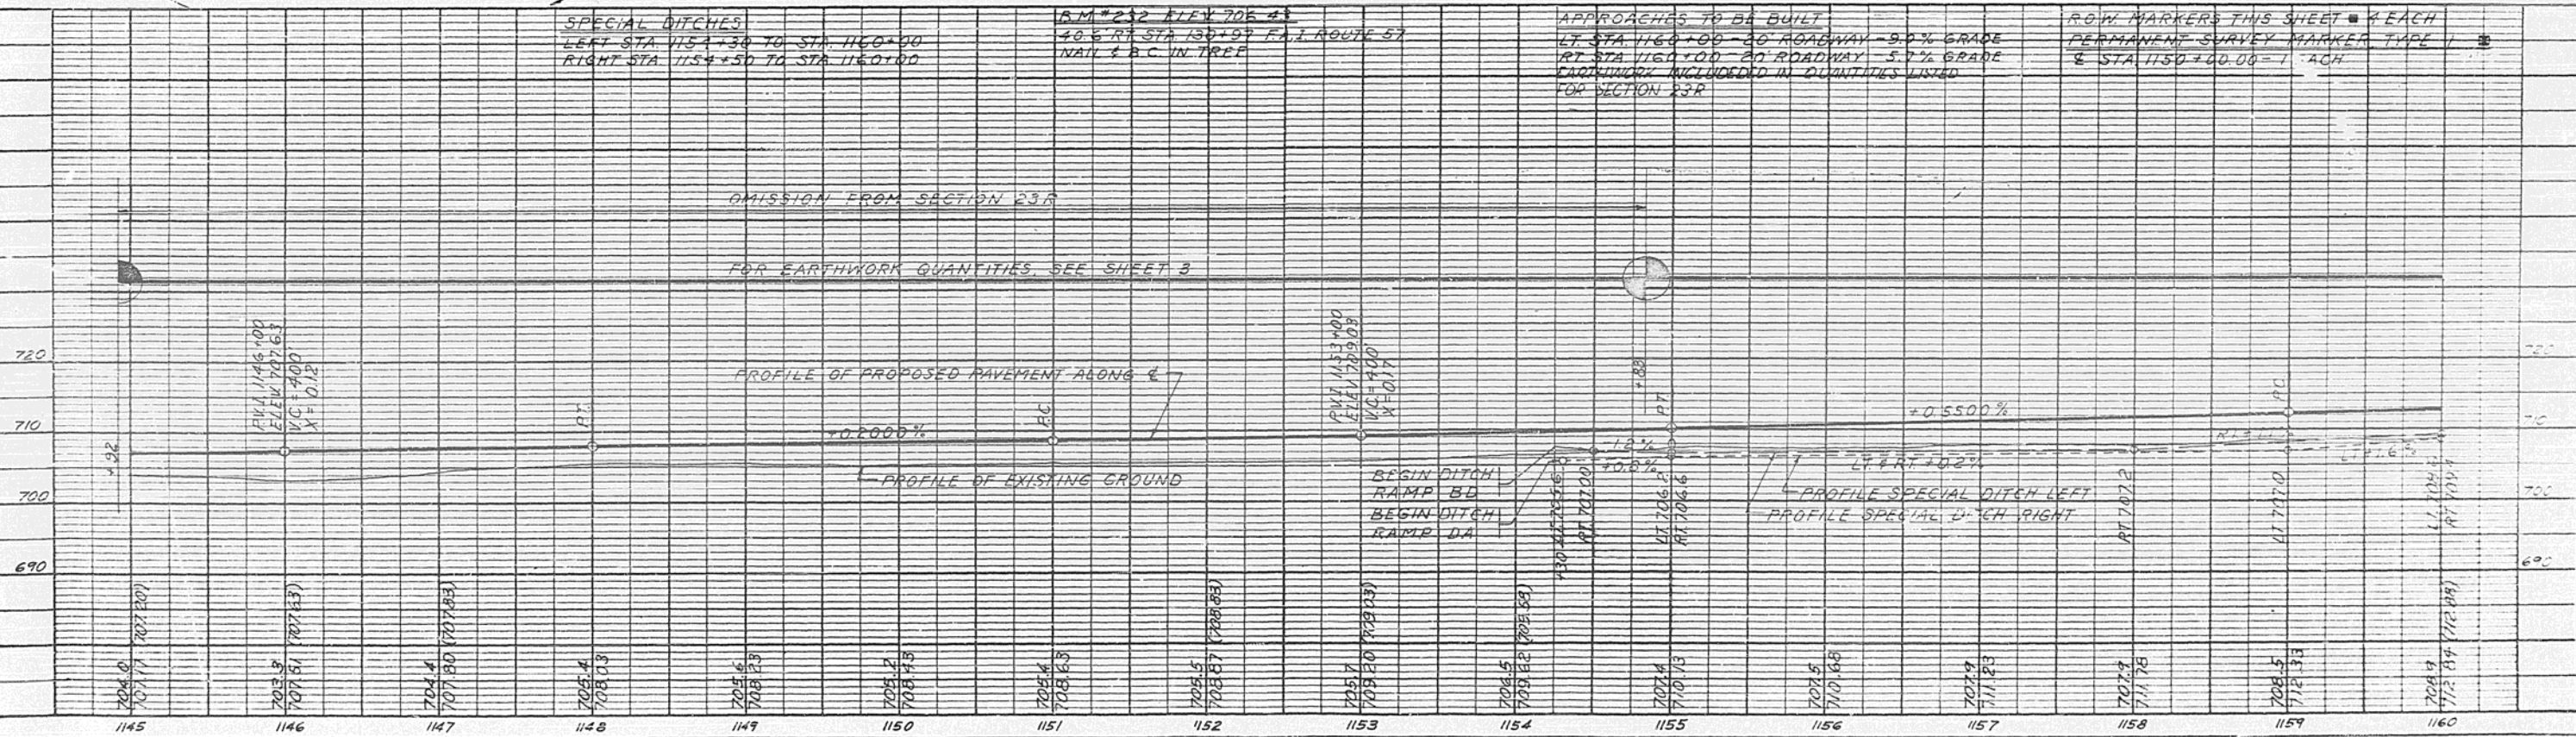 SPECIAL DITCHES
LEFT STA. 1154+30 TO STA. 1160+00
RIGHT STA. 1154+50 TO STA. 1160+00
B.M. #232 ELEV. 706.43
40.6' RT. STA. 130+97 F.A.I. ROUTE 57
NAIL & B.C. IN TREE
APPROACHES TO BE BUILT
LT. STA. 1160+00 - 20' ROADWAY -9.0% GRADE
RT. STA. 1160+00 - 20' ROADWAY -5.7% GRADE
EARTHWORK INCLUDEDED IN QUANTITIES LISTED
FOR SECTION 23R
R.O.W. MARKERS THIS SHEET 4 EACH
PERMANENT SURVEY MARKER, TYPE 1
℄ STA. 1150+00.00 - 1 EACH
OMISSION FROM SECTION 23R
FOR EARTHWORK QUANTITIES, SEE SHEET 3
P.V.I. 1146+00
ELEV. 707.63
V.C. = 400'
X = 0.12'
P.V.I. 1153+00
ELEV. 709.03
V.C. = 400'
X = 0.17'
720
720
PROFILE OF PROPOSED PAVEMENT ALONG ℄
+88
P.T.
P.C.
P.T.
P.C.
710
710
+0.2000%
+0.5500%
+92
-1.2%
+0.8%
LT. & RT. +0.2%
PROFILE OF EXISTING GROUND
BEGIN DITCH
RAMP BD
BEGIN DITCH
RAMP DA
PROFILE SPECIAL DITCH LEFT
PROFILE SPECIAL DITCH RIGHT
700
700
+30 LT. 705.6
RT. 707.00
LT. 706.2
RT. 706.6
RT. 707.2
LT. 707.0
RT. 709.4
690
690
704.0
707.17 (707.20)
703.3
707.51 (707.63)
704.4
707.80 (707.83)
705.4
708.03
705.6
708.23
705.2
708.43
705.4
708.63
705.5
708.87 (708.83)
705.7
709.20 (709.03)
706.5
709.62 (709.58)
707.4
710.13
707.5
710.68
707.9
711.23
707.9
711.78
708.5
712.33
708.9
712.84 (712.88)
1145 1146 1147 1148 1149 1150 1151 1152 1153 1154 1155 1156 1157 1158 1159 1160